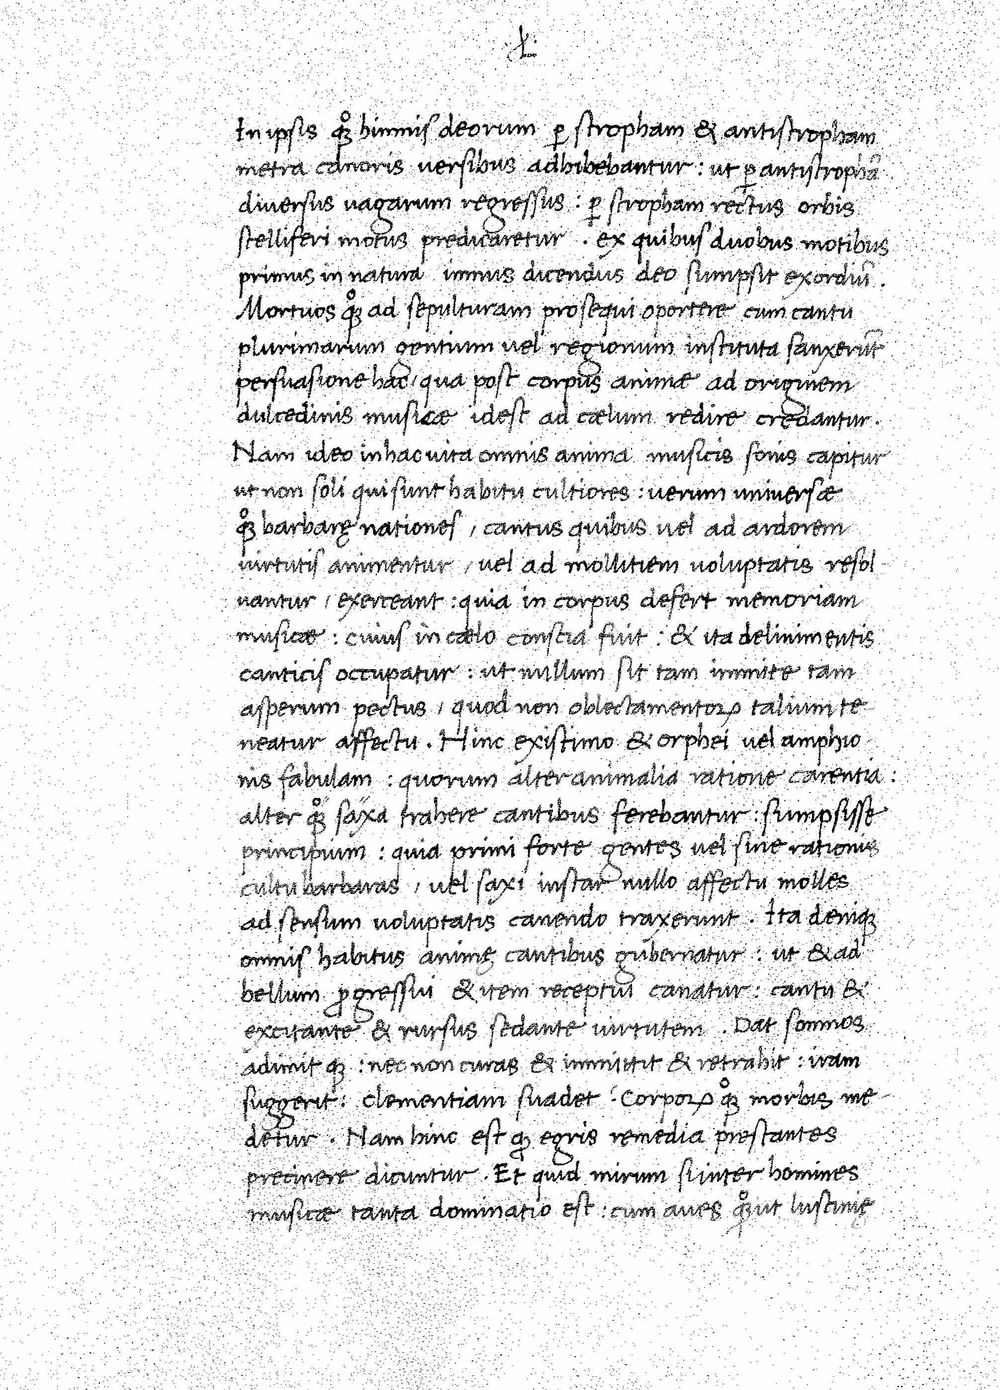 In ipsis qͦꝫ himnis deorum ꝑ stropham & antistropham
metra canoris versibus adhibebantur : ut ꝑ antistrophā
diversus vagarum regressus : ꝑ stropham rectus orbis
stelliferi motus predicaretur . ex quibus duobus motibus
primus in natura imnus dicendus deo sumpsit exordiū .
Mortuos qͦꝫ ad sepulturam prosequi oportere cum cantu
plurimarum gentium vel regionum instituta sanxerūt
persuasione hac / qua post corpus animæ ad originem
dulcedinis musicæ idest ad cælum redire credantur .
Nam ideo in hac vita omnis anima musicis sonis capitur
ut non soli qui sunt habitu cultiores : verum universæ
qͦꝫ barbarę nationes / cantus quibus vel ad ardorem
virtutis animentur / vel ad mollitiem voluptatis resol-
vantur / exerceant : quia in corpus defert memoriam
musicæ : cuius in cælo conscia fuit : & ita delinimentis
canticis occupatur : ut nullum sit tam inmite tam
asperum pectus / quod non oblectamentoꝝ talium te-
neatur affectu . Hinc existimo & orphei vel amphio-
nis fabulam : quorum alter animalia ratione carentia :
alter qͦꝫ saxa trahere cantibus ferebantur : sumpsisse
principium : quia primi forte gentes vel sine rationis
cultu barbaras / vel saxi instar nullo affectu molles
ad sensum voluptatis canendo traxerunt . Ita deniqꝫ
omnis habitus animę cantibus gubernatur : ut & ad
bellum ꝓgressui & item receptui canatur : cantu &
excitante & rursus sedante virtutem . Dat somnos
adimit qꝫ : nec non curas & inmittit & retrahit : iram
suggerit : clementiam suadet : Corpoꝝ qͦꝫ morbis me-
detur . Nam hinc est qꝫ egris remedia prestantes
precinere dicuntur . Et quid mirum si inter homines
musicæ tanta dominatio est : cum aves qͦꝫ ut luscinię